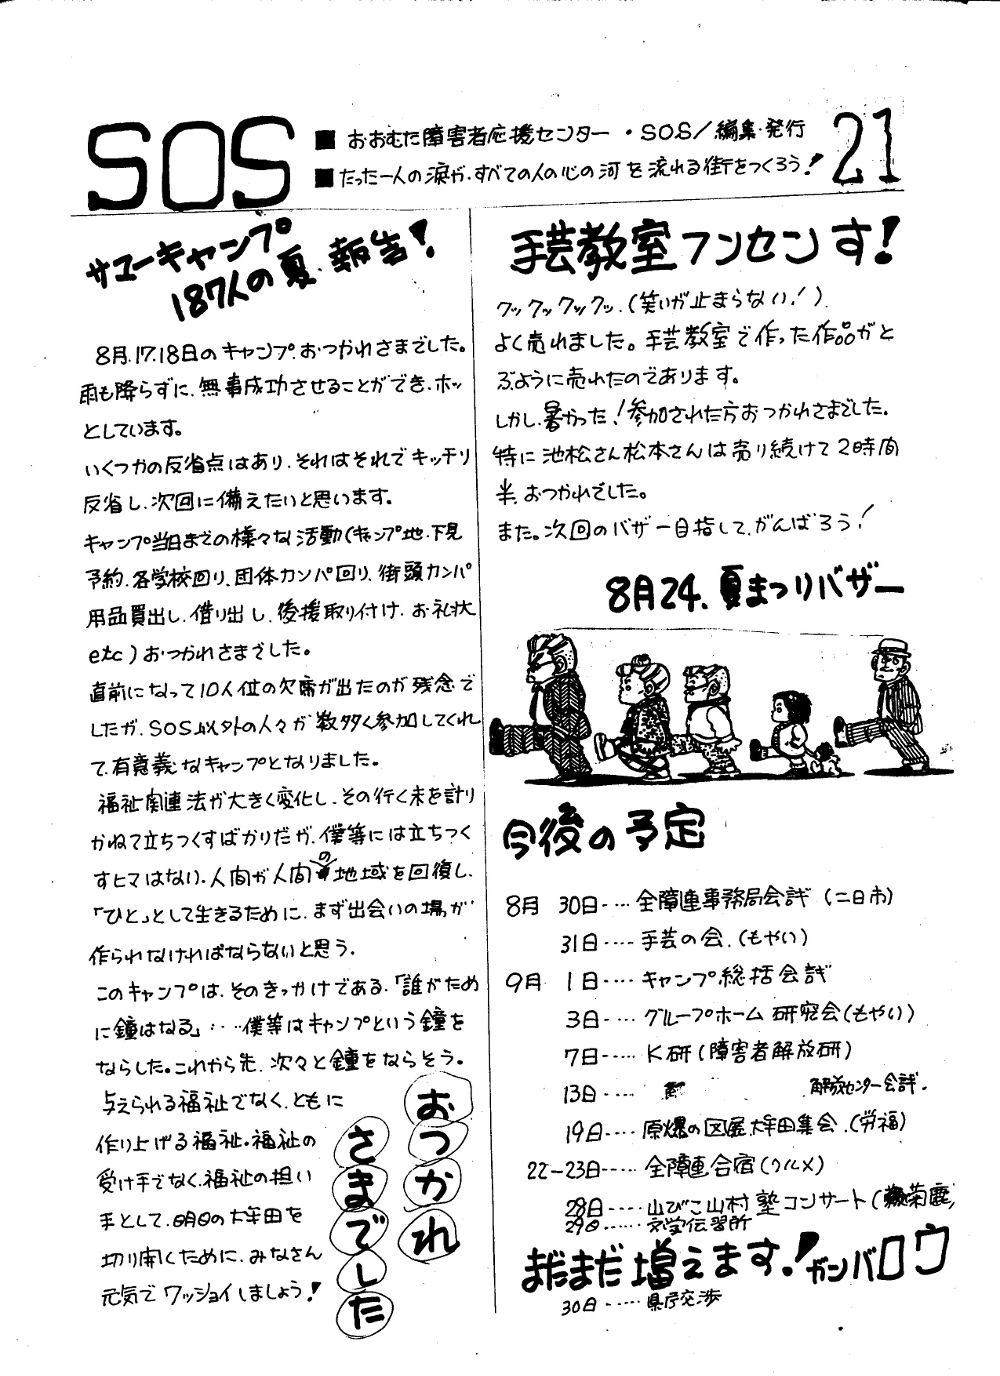 SOS
■ おおむた障害者応援センター・SOS/編集・発行
■ たった一人の涙が、すべての人の心の河を流れる街をつくろう!
21
サユーキャンプ
187人の夏、報告!
8月、17、18日のキャンプ、おつかれさまでした。
雨も降らずに、無事成功させることができ、ホッ
としています。
いくつかの反省点はあり、それはそれでキッチリ
反省し、次回に備えたいと思います。
キャンプ当日までの様々な活動(キャンプ地、下見
予約、各学校回り、団体カンパ回り、街頭カンパ
用品買出し、借り出し、後援取り付け、お礼状
etc)おつかれさまでした。
直前になって10人位の欠席が出たのが残念で
したが、SOS以外の人々が数多く参加してくれ
て、有意義なキャンプとなりました。
福祉関連法が大きく変化し、その行く末を計り
かねて立ちつくすばかりだが、僕等には立ちつく
すヒマはない。人間が人間の地域を回復し、
「ひと」として生きるために、まず出会いの場が
作られなければならないと思う。
このキャンプは、そのきっかけである。「誰がため
に鐘はなる」……僕等はキャンプという鐘を
ならした。これから先、次々と鐘をならそう。
与えられる福祉でなく、ともに
作り上げる福祉。福祉の
受け手でなく、福祉の担い
手として、明日の大牟田を
切り開くために、みなさん
元気でワッショイしましょう!
おつかれ
さまでした
手芸教室フンセンす!
クックックックッ、(笑いが止まらない!)
よく売れました。手芸教室で作った作品がと
ぶように売れたのであります。
しかし、暑かった!参加された方おつかれさまでした。
特に池松さん松本さんは売り続けて2時間
半、おつかれでした。
また。次回のバザー目指して、がんばろう!
8月24、夏まつりバザー
今後の予定
8月 30日‥‥全障連事務局会議(二日市)
31日‥‥手芸の会、(もやい)
9月 1日‥‥キャンプ総括会議
3日‥‥グループホーム研究会(もやい)
7日‥‥K研(障害者解放研)
13日‥‥ 解放センター会議.
19日‥‥原爆の図展大牟田集会、(労福)
22-23日‥‥全障連合宿(クルメ)
28日‥‥山びこ山村塾コンサート(菊鹿)
29日‥‥文学伝習所
まだまだ増えます!ガンバロウ
30日‥‥県庁交渉